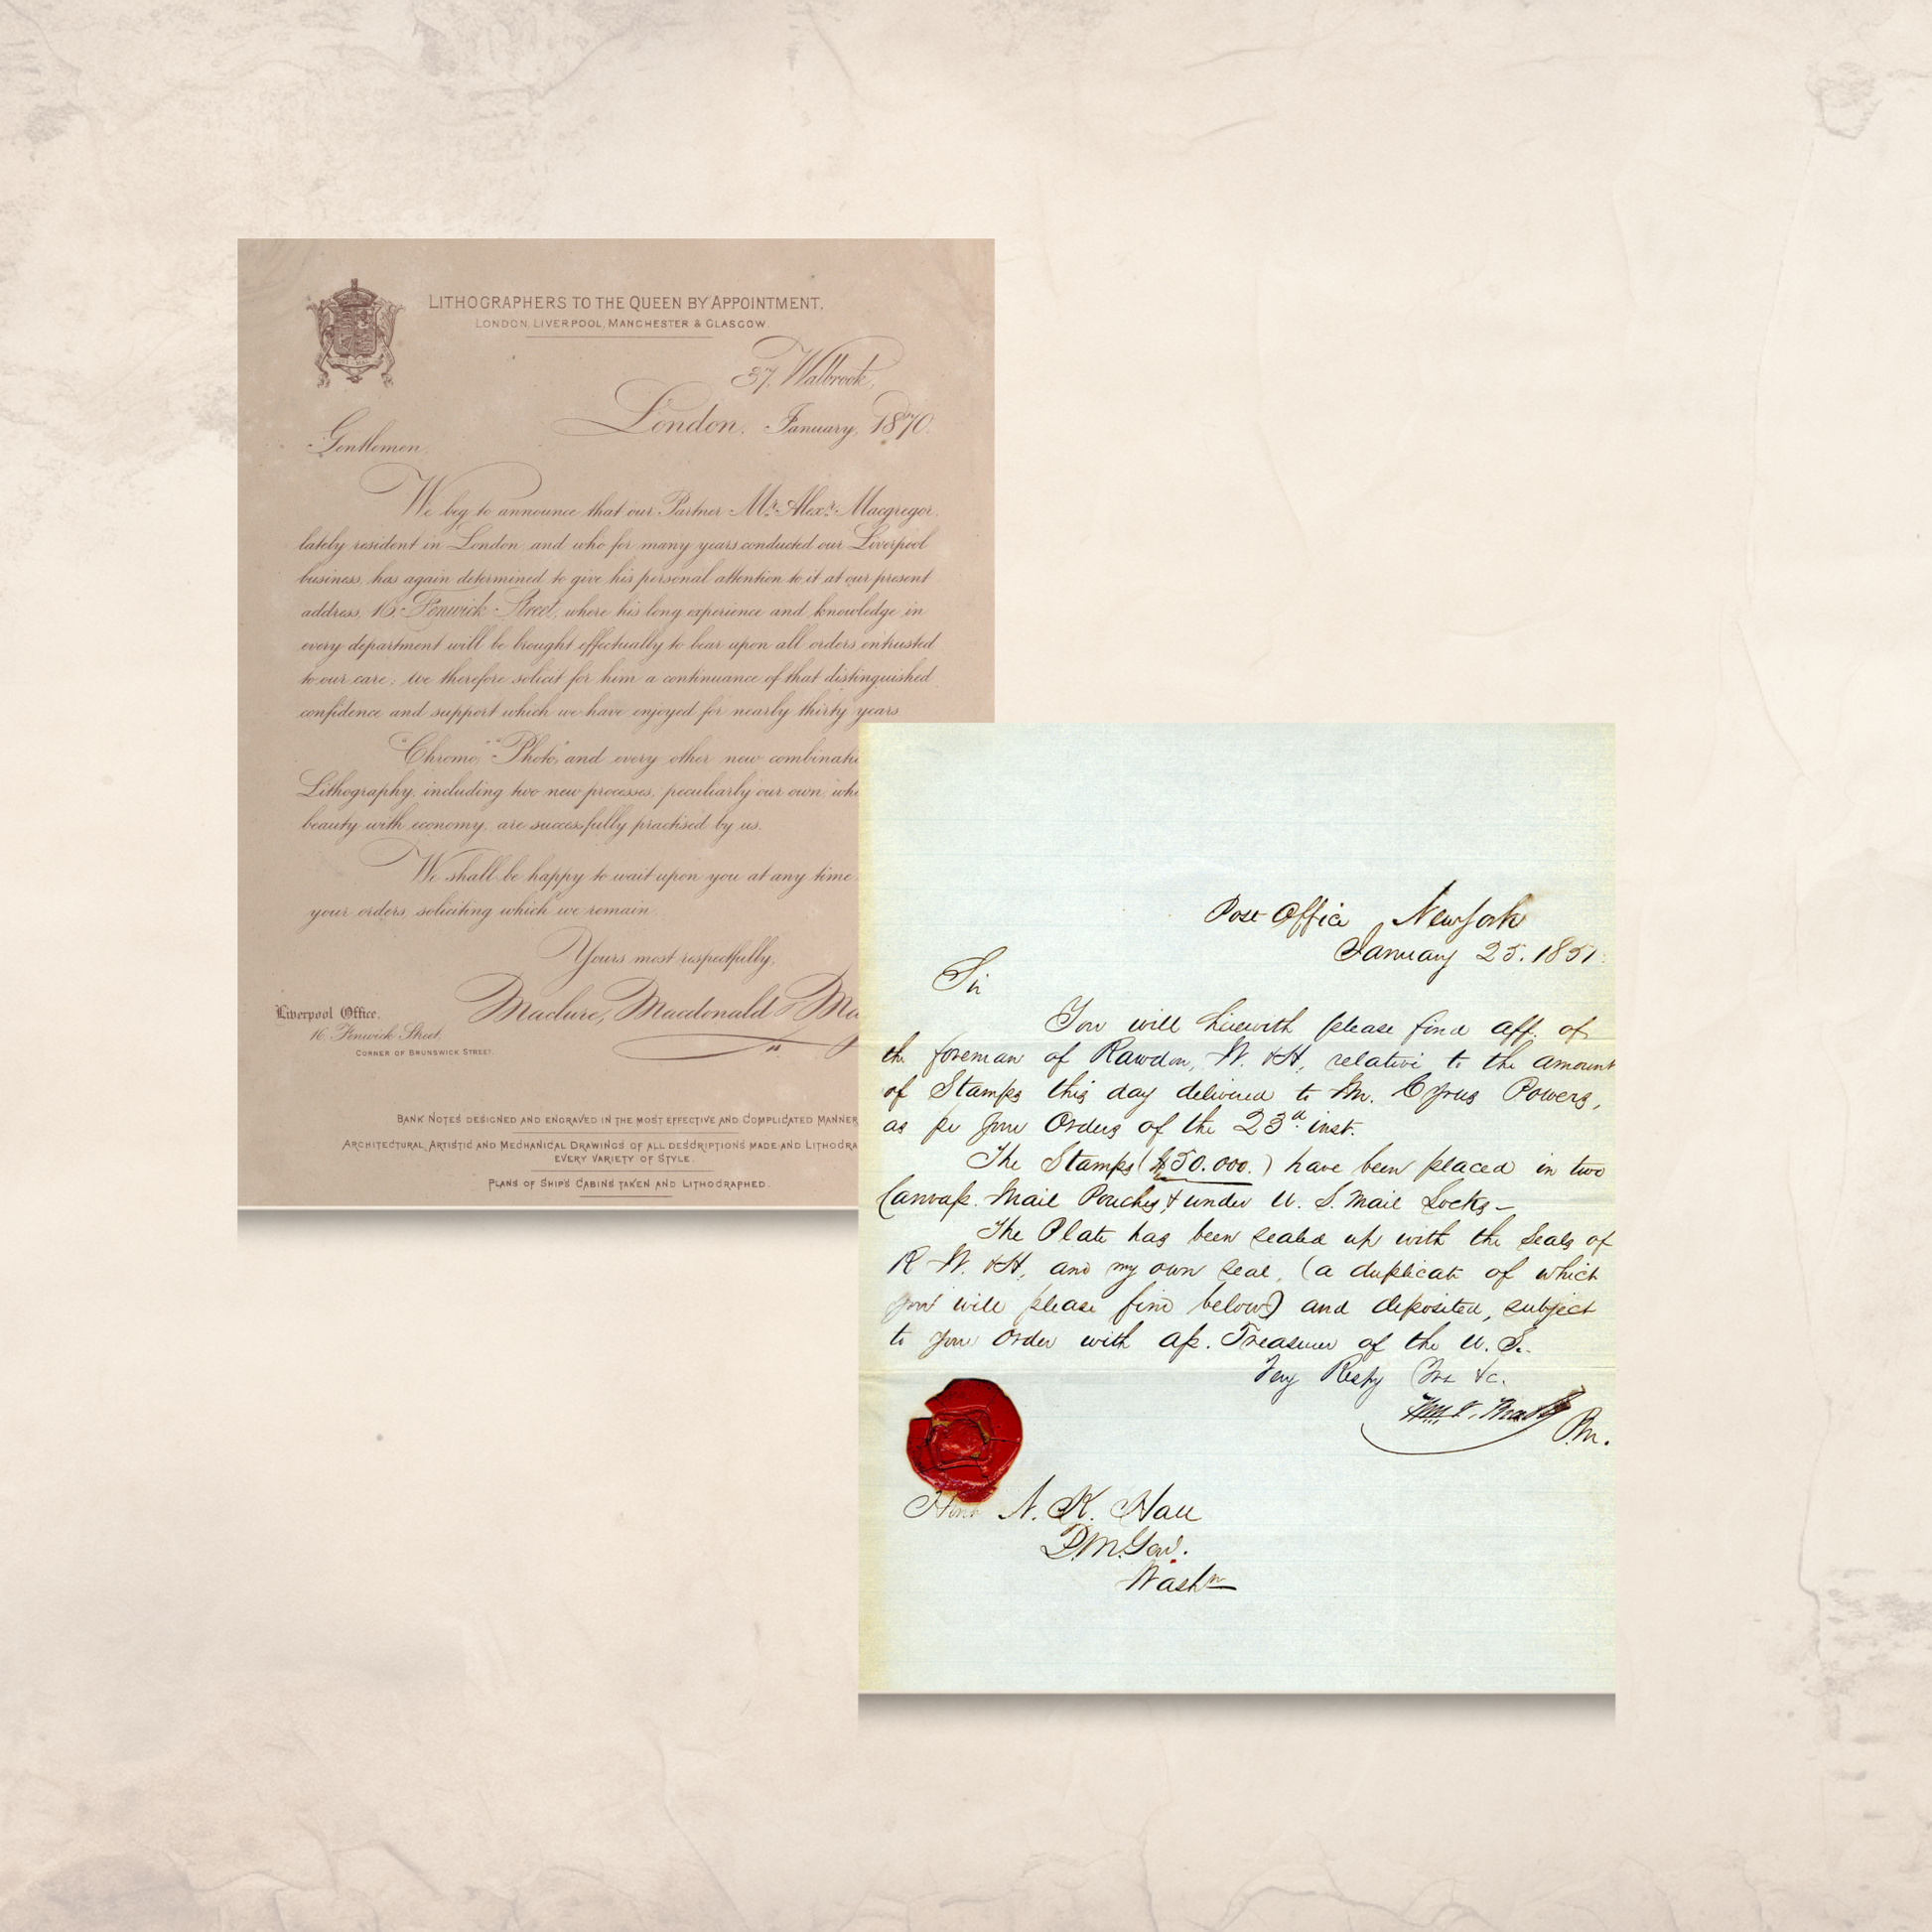 LITHOGRAPHERS TO THE QUEEN BY APPOINTMENT,
LONDON, LIVERPOOL, MANCHESTER & GLASGOW.
37, Walbrook,
London, January, 1870.
Gentlemen,
We beg to announce that our Partner Mr. Alexr. Macgregor,
lately resident in London, and who for many years conducted our Liverpool
business, has again determined to give his personal attention to it at our present
address, 16, Fenwick Street, where his long experience and knowledge in
every department will be brought effectually to bear upon all orders entrusted
to our care; we therefore solicit for him a continuance of that distinguished
confidence and support which we have enjoyed for nearly thirty years
"Chromo," "Photo," and every other new
Lithography, including two new processes, peculiarly our own,
beauty with economy, are successfully practised by us.
We shall be happy to wait upon you at any time
your orders, soliciting which we remain
Yours most respectfully,
Maclure, Macdonald &
Liverpool Office,
16, Fenwick Street,
CORNER OF BRUNSWICK STREET.
BANK NOTES DESIGNED AND ENGRAVED IN THE MOST EFFECTIVE AND COMPLICATED MANNER
ARCHITECTURAL, ARTISTIC AND MECHANICAL DRAWINGS OF ALL DESCRIPTIONS MADE AND
EVERY VARIETY OF STYLE.
PLANS OF SHIP'S CABINS TAKEN AND LITHOGRAPHED.
Post Office New York
January 25. 1851.
Sir
You will herewith please find aff. of
the foreman of Rawdon, W. & H, relative to the amount
of Stamps this day delivered to Mr. Cyrus Powers,
as per your Orders of the 23d. inst.
The Stamps ($50.000.) have been placed in two
Canvass Mail Pouches, & under U. S. Mail Locks —
The Plate has been sealed up with the Seals of
R W. & H, and my own seal, (a duplicate of which
you will please find below) and deposited, subject
to your order with ass. Treasurer of the U. S.
Very Respy Yrs &c.
Wm V. Brady
P.M.
Hon N. K. Hall
P.M. Genl.
Washn